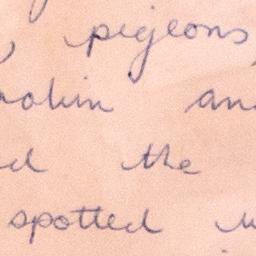 , pigeons,
robin an
d the
spotted w